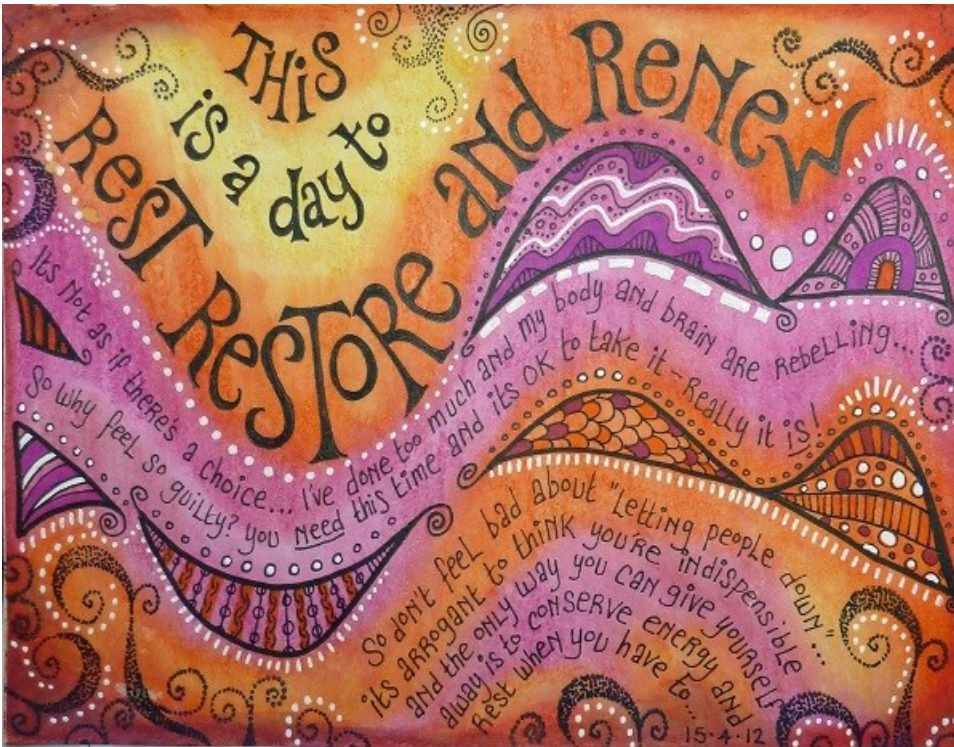 THis
is a day to
Rest Restore and Renew
Its Not as if there's a choice... I've done too much and my body and brain are rebelling...
So why feel so guilty? you need this time and its OK to take it - Really it is!
So don't feel bad about "Letting people down"...
its arrogant to think you're indispensible
and the only way you can give yourself
away is to conserve energy and
Rest when you have to...
15.4.12